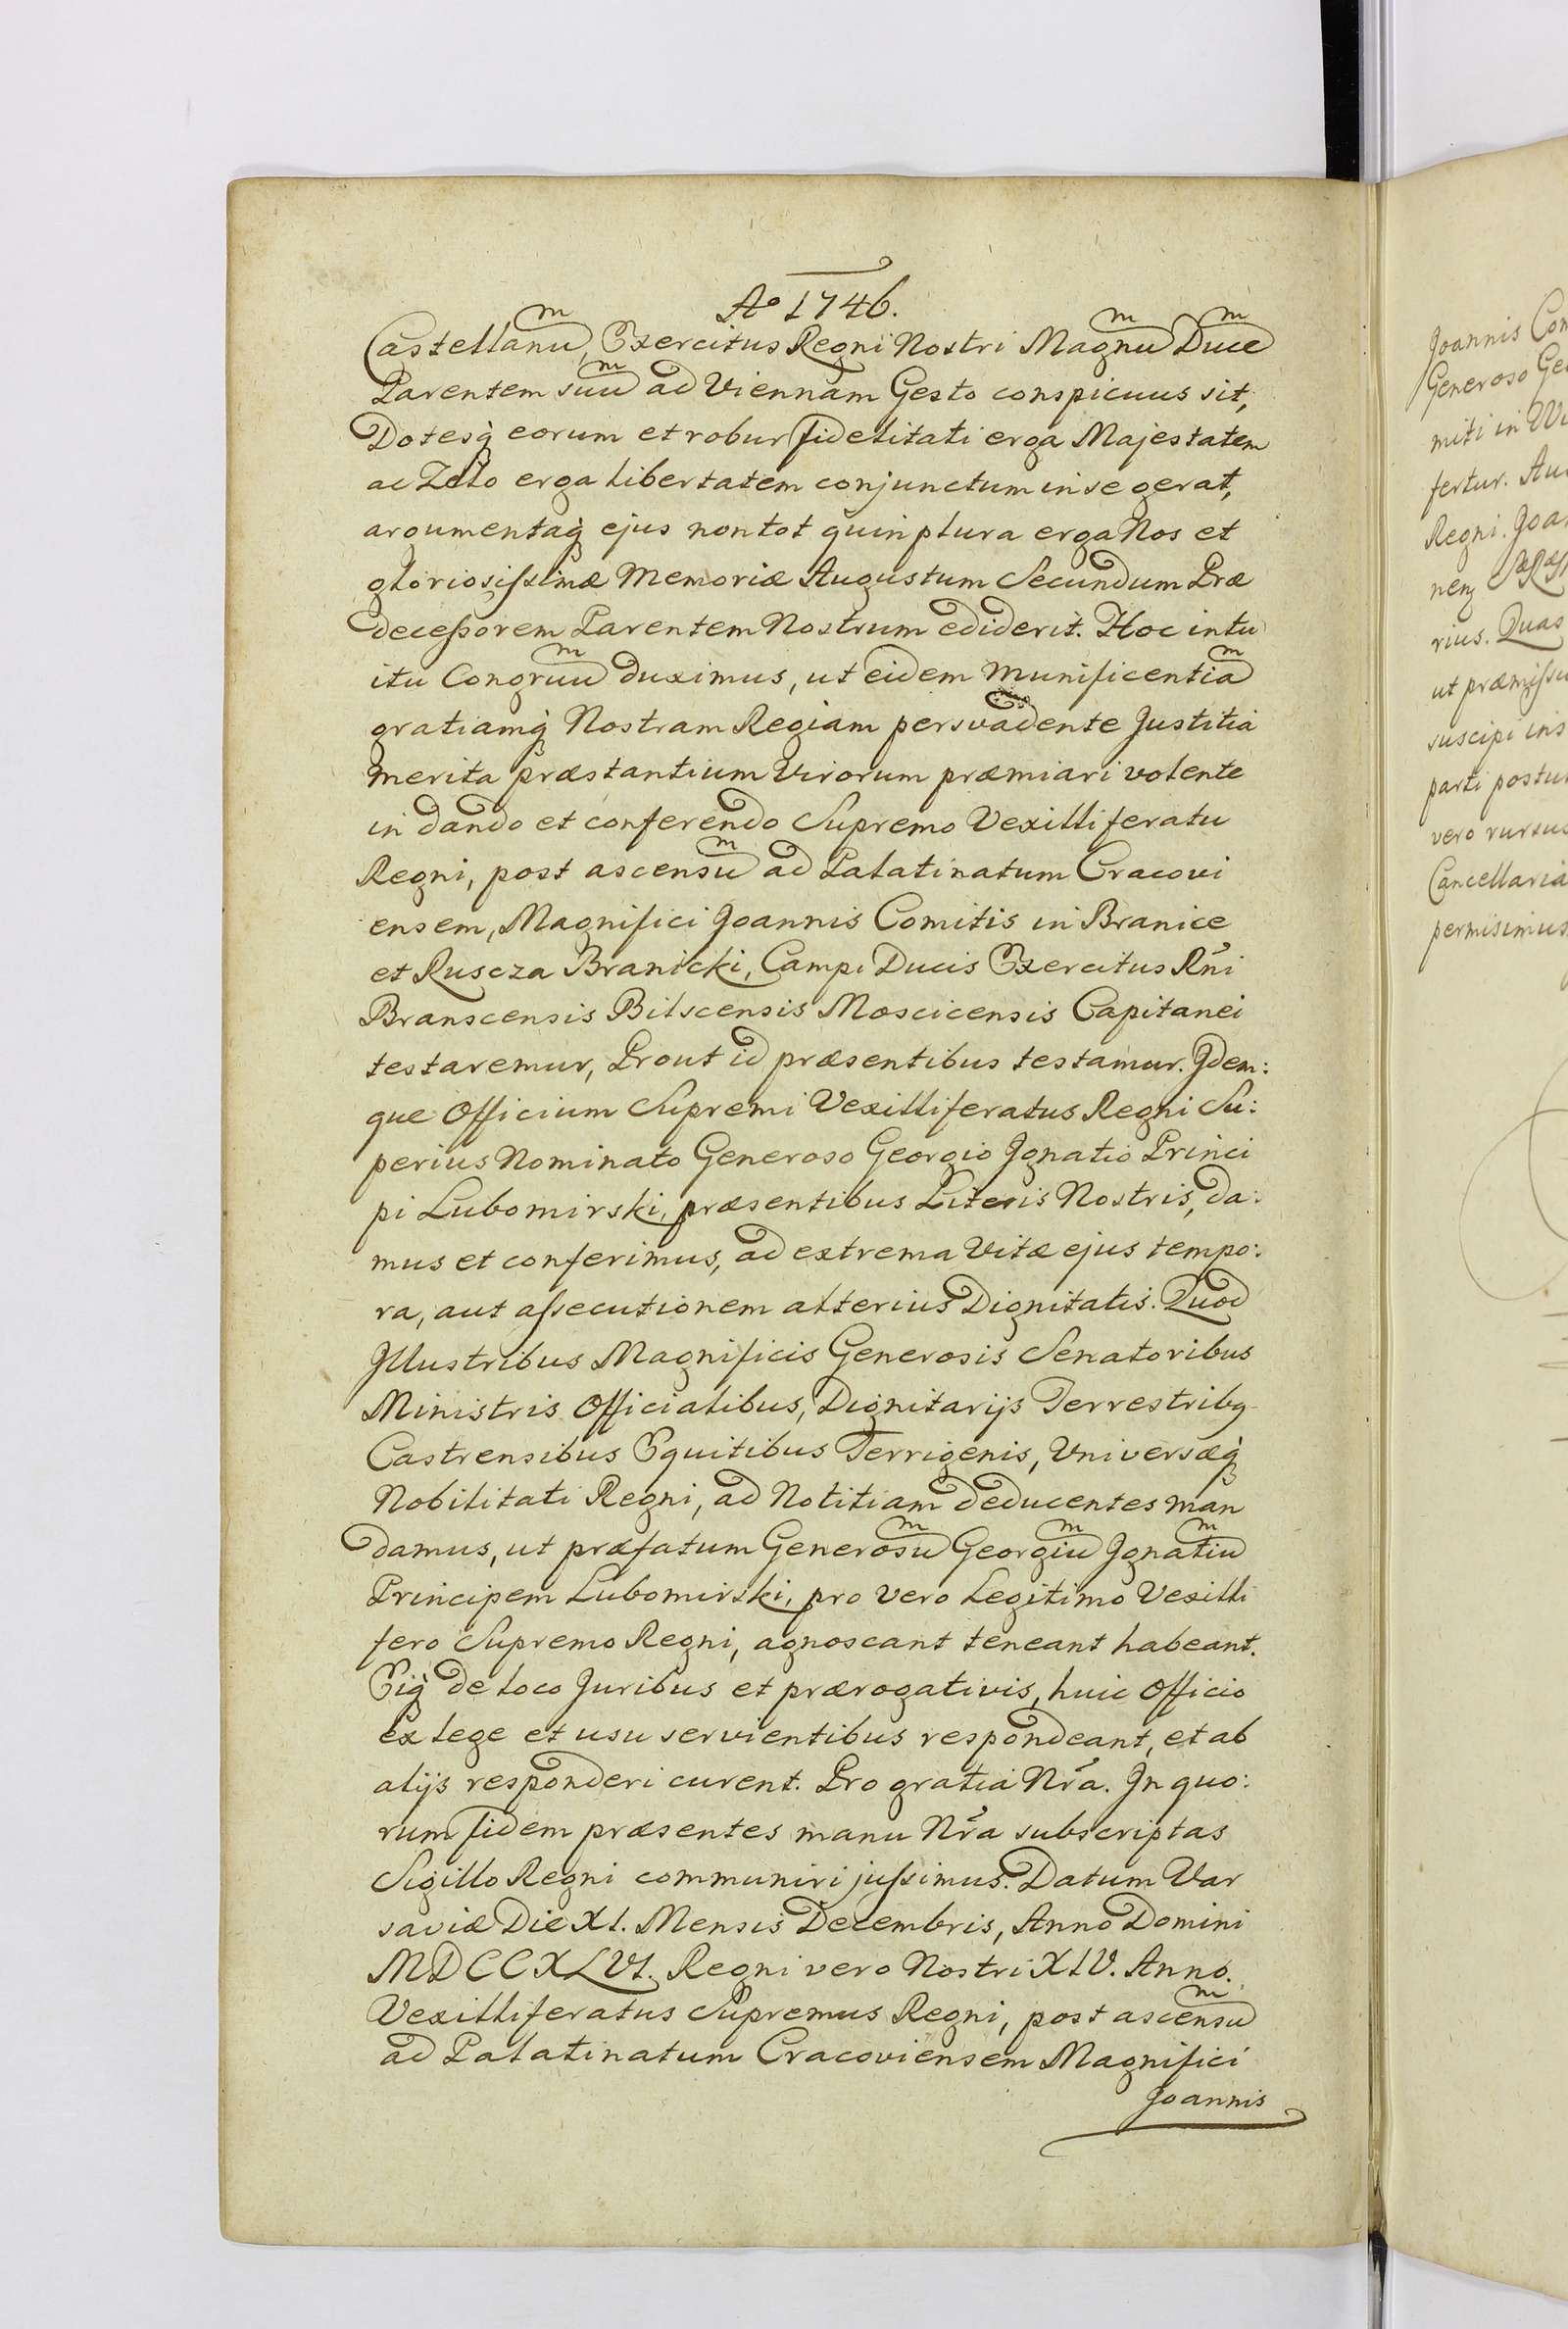 Aº 1746.
Castellanū, Exercitus Regni Nostri Magnū Ducē
Parentem suū ad Viennam Gesto conspicuus sit,
Dotesq̀ eorum et robur fidelitati erga Majestatem
ac Zelo erga libertatem conjunctum in se gerat,
argumentaq̀ ejus non tot quin plura erga Nos et
gloriosissimæ Memoriæ Augustum Secundum Præ
decessorem Parentem Nostrum ediderit. Hoc intu
itu Congruū duximus, ut eidem Munificentiā
gratiamq̀ Nostram Regiam persvadente Justitia
merita præstantium Virorum præmiari volente
in dando et conferendo Supremo Vexilliferatu
Regni, post ascensū ad Palatinatum Cracovi
ensem, Magnifici Joannis Comitis in Branice
et Ruscza Branicki, Campi Ducis Exercitus Rñi
Branscensis Bilscensis Moscicensis Capitanei
testaremur, Prout id præsentibus testamur. Jdem:
que Officium Supremi Vexilliferatus Regni Su:
perius Nominato Generoso Georgio Jgnatio Princi
pi Lubomirski, præsentibus Literis Nostris, da:
mus et conferimus, ad extrema Vitæ ejus tempo:
ra, aut assecutionem alterius Dignitatis. Quod
Jllustribus Magnificis Generosis Senatoribus
Ministris Officialibus, Dignitarijs Terrestribg
Castrensibus Equitibus Terrigenis, Universæq̀
Nobilitati Regni, ad Notitiam deducentes man
damus, ut præfatum Generosū Georgiū Jgnatiū
Principem Lubomirski, pro vero Legitimo Vexilli
fero Supremo Regni, agnoscant teneant habeant.
Eiq̀ de loco Juribus et prærogativis, huic Officio
ex lege et usu servientibus respondeant, et ab
alijs responderi curent. Pro gratia Nr̃a. Jn quo:
rum fidem præsentes manu Nr̃a subscriptas
Sigillo Regni communiri jussimus. Datum Var
saviæ Die XI. Mensis Decembris, Anno Domini
MDCCXLVI. Regni vero Nostri XIV. Anno.
Vexilliferatus Supremus Regni, post ascensū
ad Palatinatum Cracoviensem Magnifici
Joannis
Joannis
Generoso
miti in
fertur.
Regni.
rius. Quas
ut
suscipi
parti
vero rursus
Cancellaria
permisimus